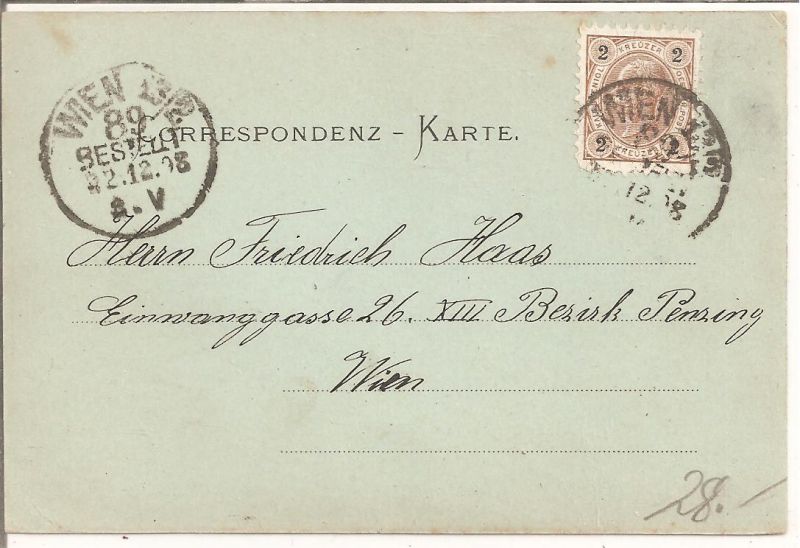 WIEN 13/2
89
BESTELLT
22.12.98
8.V
2 KREUZER 2
2 KREUZER 2
WIEN 13/2
CORRESPONDENZ – KARTE.
Herrn Friedrich Haas
Einwanggasse 26. XIII Bezirk Penzing
Wien
28.-